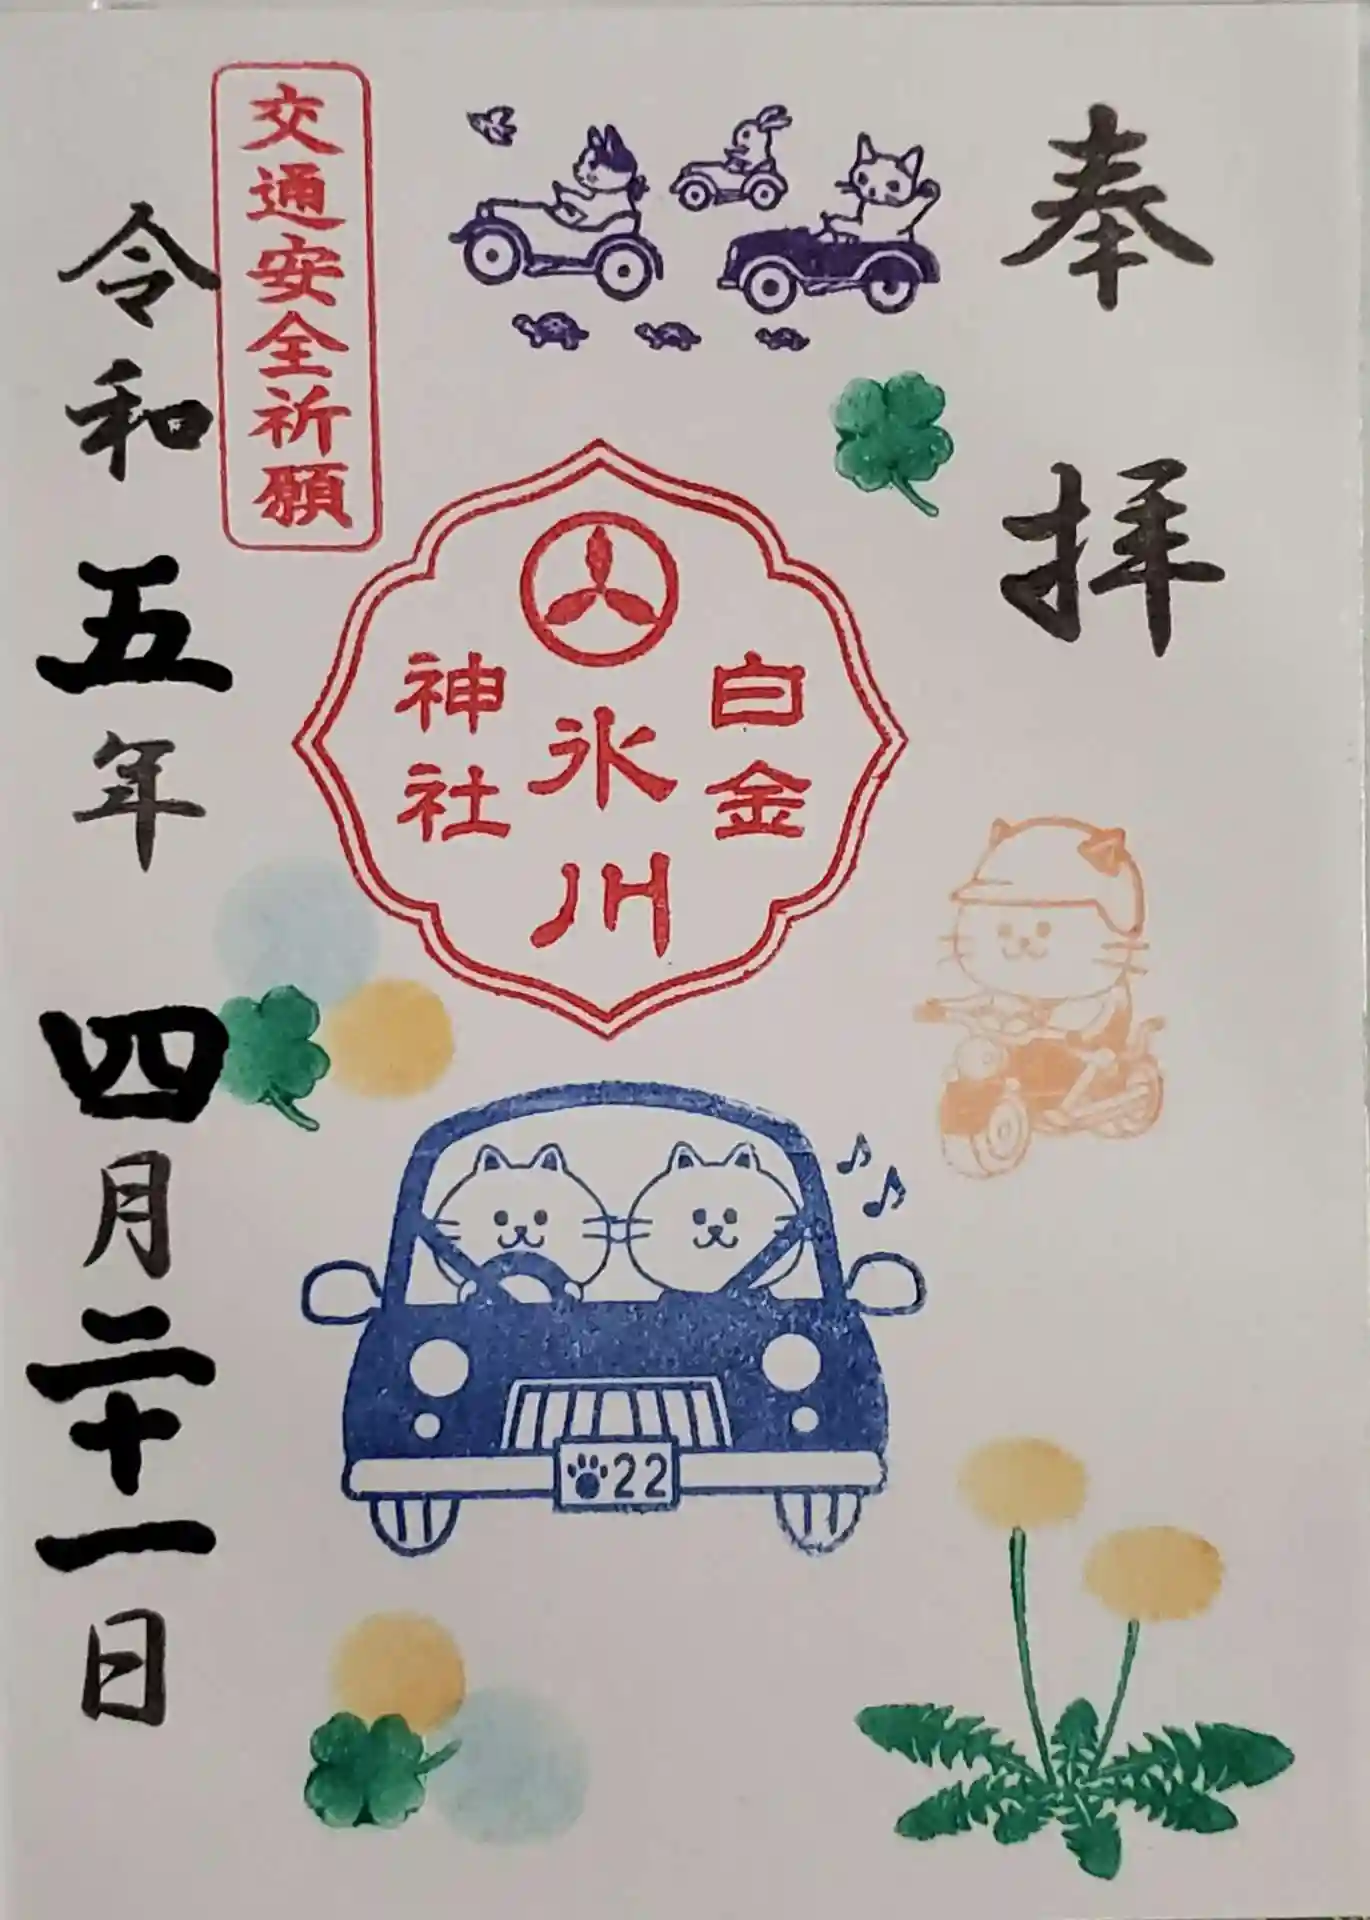 奉拝
白金
氷川
神社
交通安全祈願
令和五年四月二十一日
22